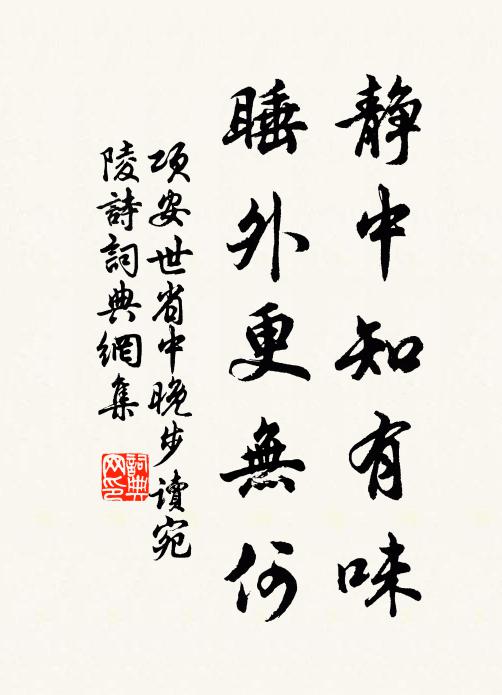 靜中知有味
睡外更無何
項安世省中晚步讀宛
陵詩詞典網集
詞典
网印